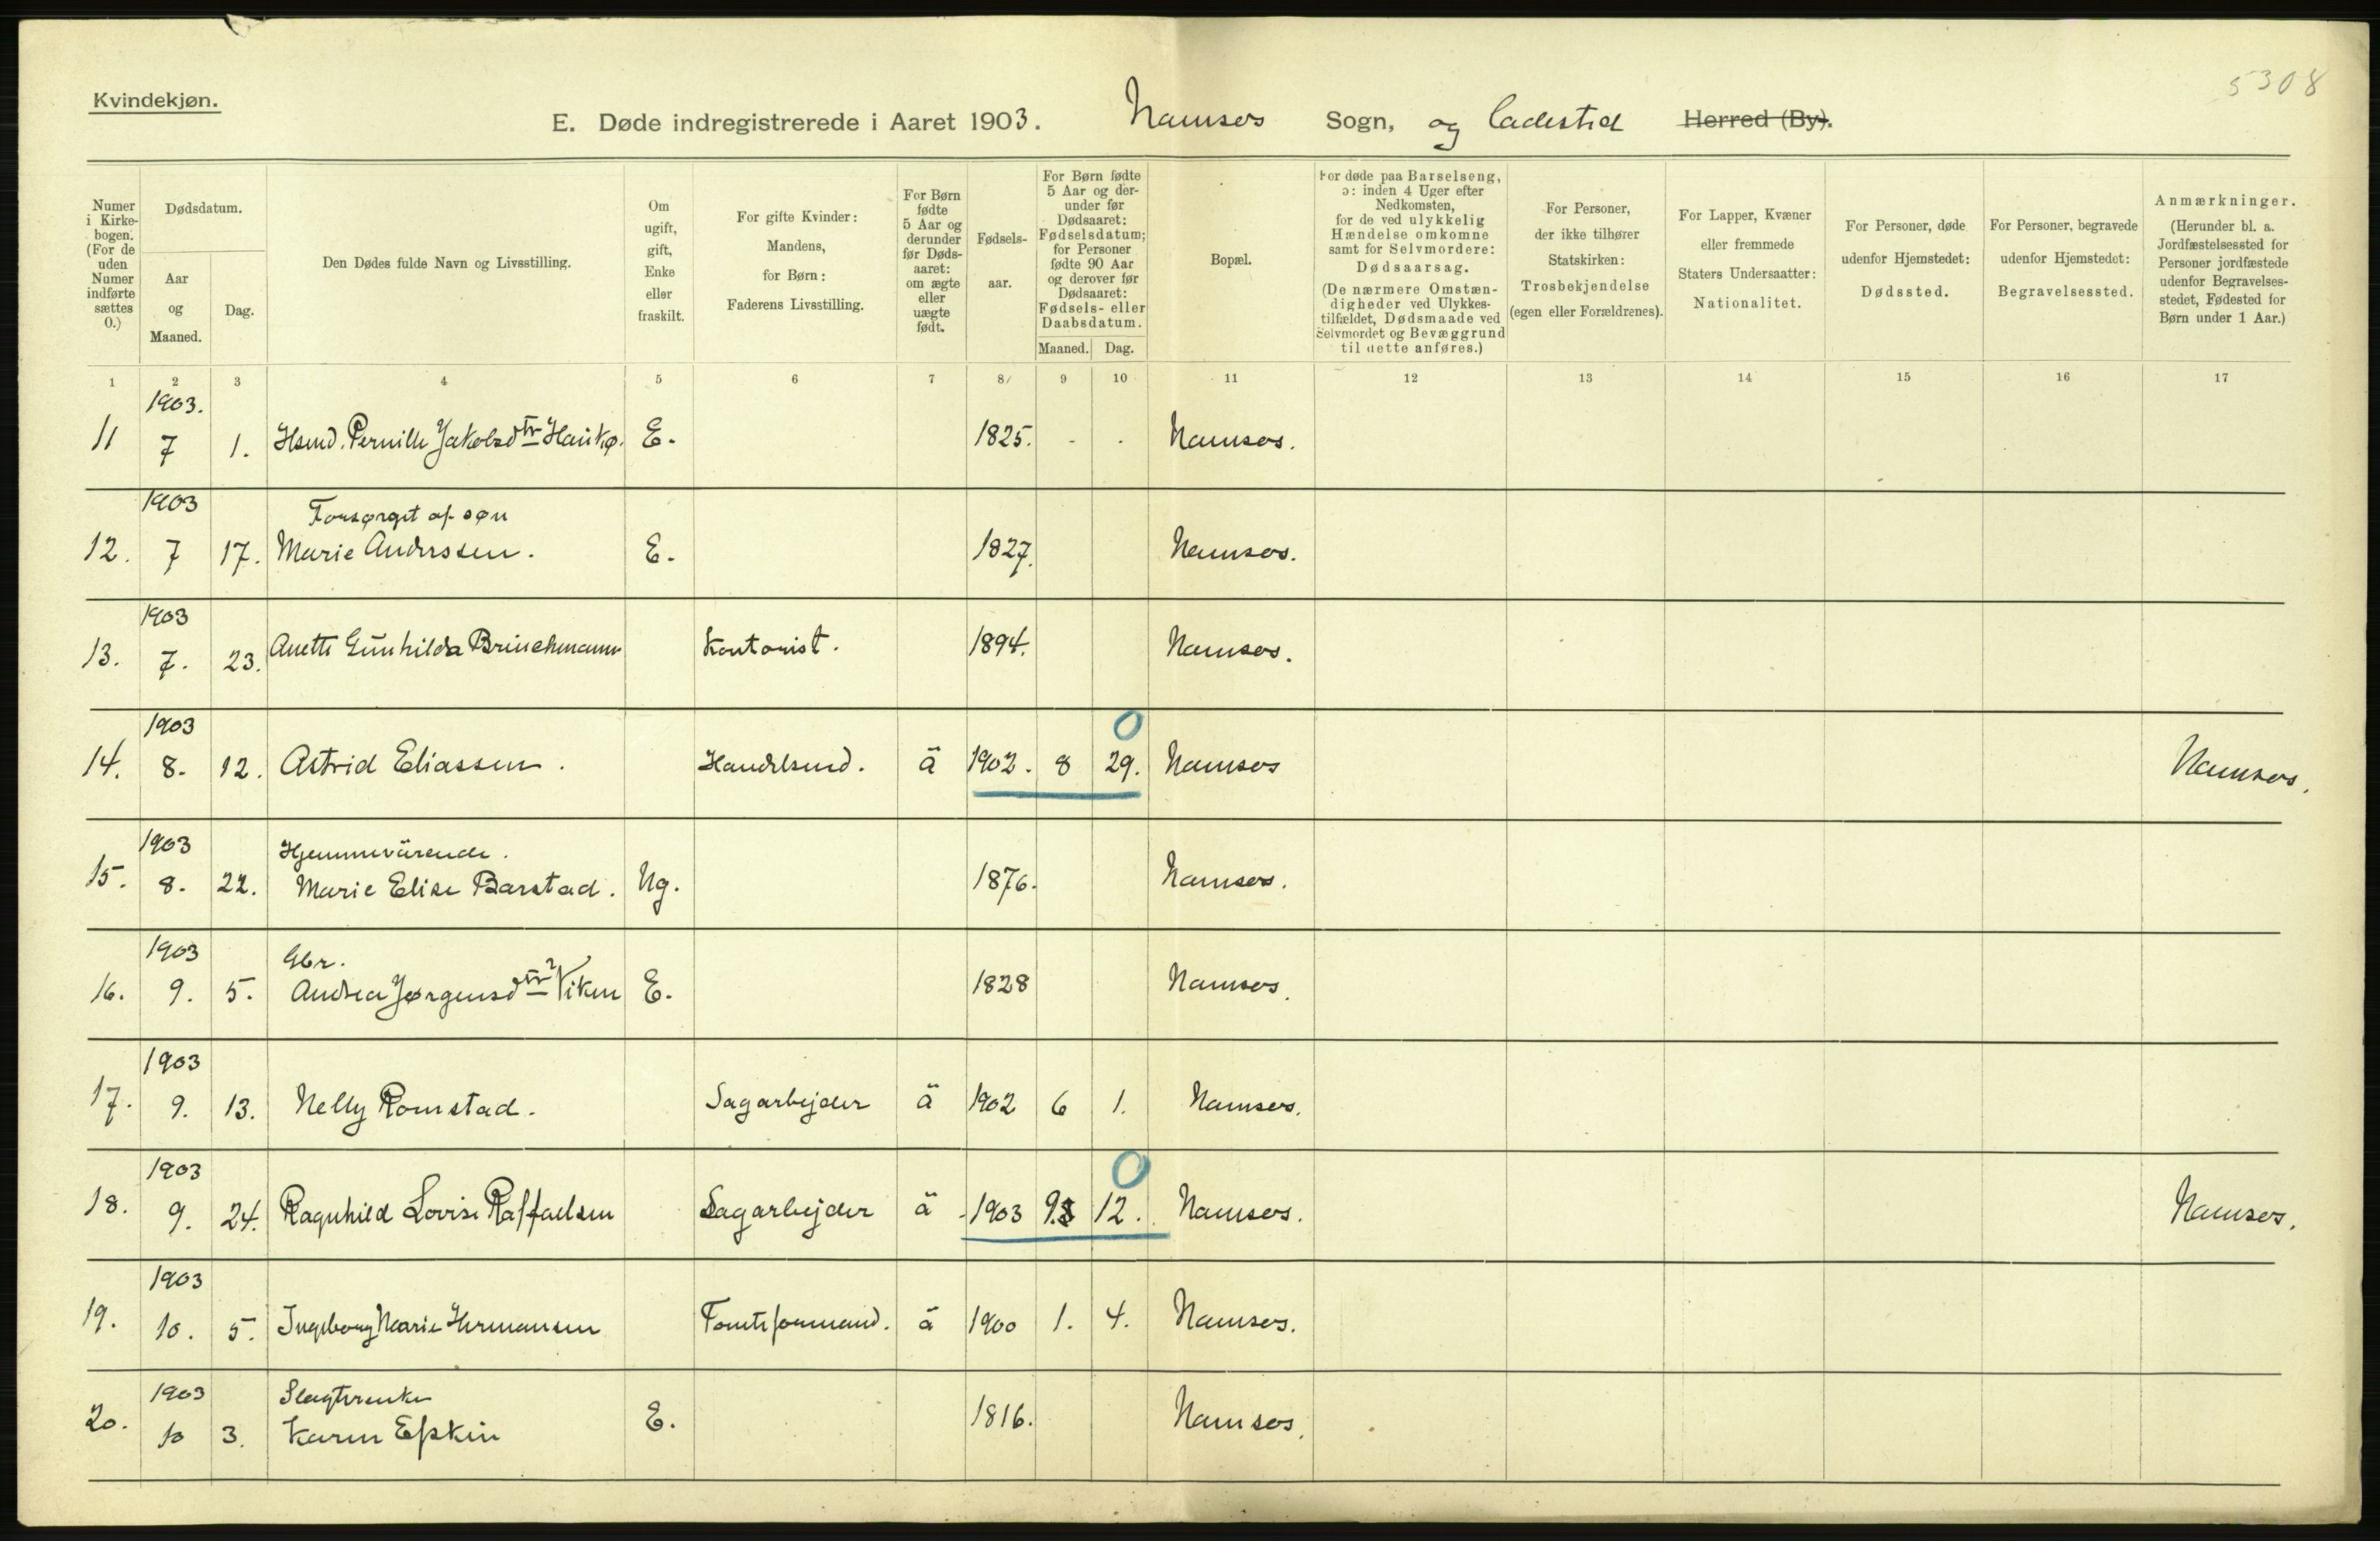 5308
Kvindekjøn.
E. Døde indregistrerede i Aaret 1903. Namsos Sogn, og Ladested Herred (By).
Numer i Kirkebogen. (For de uden Numer indførte sættes 0.)
Dødsdatum.
Aar og Maaned.
Dag.
Den Dødes fulde Navn og Livsstilling.
Om ugift, gift, Enke eller fraskilt.
For gifte Kvinder: Mandens, for Børn: Faderens Livsstilling.
For Børn fødte 5 Aar og derunder før Dødsaaret: om ægte eller uægte født.
Fødselsaar.
For Børn fødte 5 Aar og derunder før Dødsaaret: Fødselsdatum; for Personer fødte 90 Aar og derover før Dødsaaret: Fødsels- eller Daabsdatum.
Maaned. Dag.
Bopæl.
For døde paa Barselseng, ɔ: inden 4 Uger efter Nedkomsten, for de ved ulykkelig Hændelse omkomne samt for Selvmordere: Dødsaarsag. (De nærmere Omstændigheder ved Ulykkestilfældet, Dødsmaade ved Selvmordet og Bevæggrund til dette anføres.)
For Personer, der ikke tilhører Statskirken: Trosbekjendelse (egen eller Forældrenes).
For Lapper, Kvæner eller fremmede Staters Undersaatter: Nationalitet.
For Personer, døde udenfor Hjemstedet: Dødssted.
For Personer, begravede udenfor Hjemstedet: Begravelsessted.
Anmærkninger. (Herunder bl. a. Jordfæstelsessted for Personer jordfæstede udenfor Begravelsesstedet, Fødested for Børn under 1 Aar.)
1 2 3 4 5 6 7 8 9 10 11 12 13 14 15 16 17
1903.
11 7 1. Hsmd. Pernille Jakobsdtr Haukø. E. 1825. - . Namsos.
1903 Forsørget af søn
12. 7 17. Marie Anderssen. E. 1827. Namsos.
1903
13. 7. 23. Anette Gunhilda Brinchmann Kontorist. 1894. Namsos.
1903 0
14. 8. 12. Astrid Eliassen. Handelsmd. ä 1902. 8 29. Namsos Namsos.
1903 Hjemmevärende.
15. 8. 22. Marie Elise Barstad. Ug. 1876. Namsos.
1903 Gbr.
16. 9. 5. Andrea Jørgensdtr Viken E. 1828 Namsos.
1903
17. 9. 13. Nelly Romstad. Sagarbejder ä 1902 6 1. Namsos.
1903 0
18. 9. 24. Ragnhild Lovise Raffaelsen Sagarbejder ä 1903 9. 12. Namsos. Namsos.
1903
19. 10. 5. Ingeborg Marie Hermansen Tomteformand. ä 1900 1. 4. Namsos.
1903 Slagterenke
20. 10 3. Karen Eskin E. 1816. Namsos.